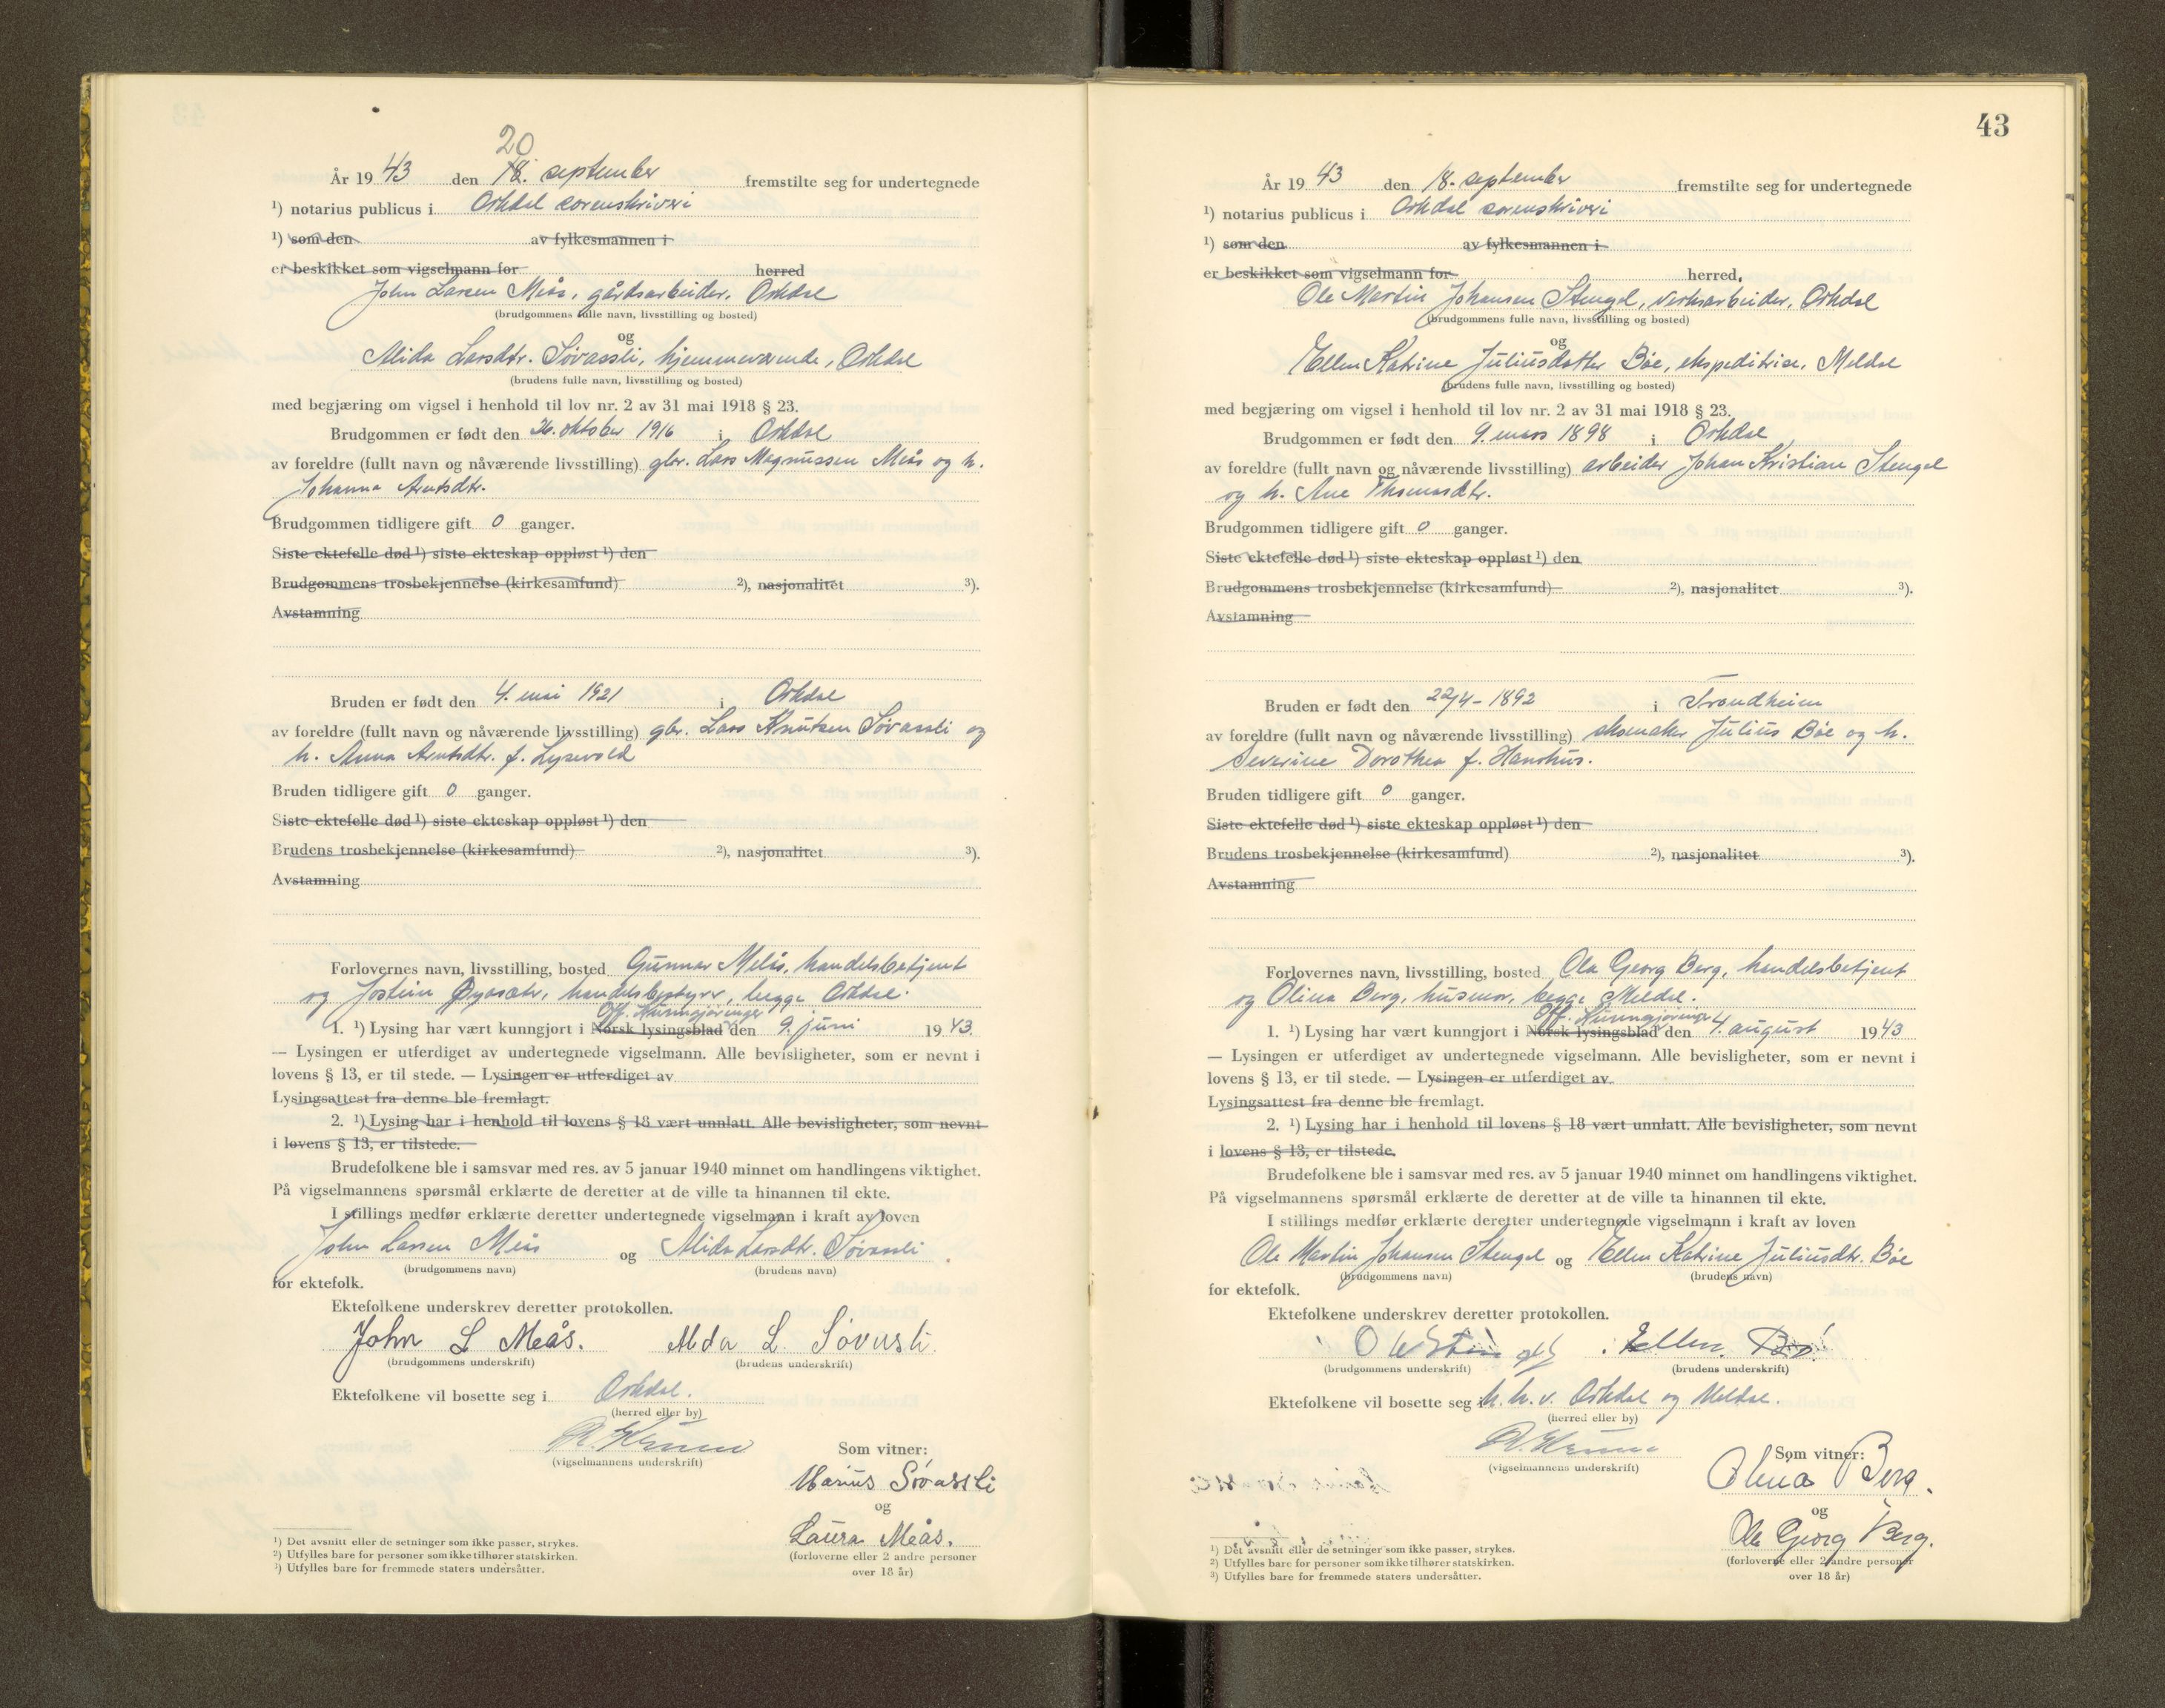 20
År 19 43 den 18. september fremstilte seg for undertegnede
¹) notarius publicus i Orkdal sorenskriveri
¹) som den av fylkesmannen i
er beskikket som vigselmann for herred
John Larsen Meås, gårdsarbeider, Orkdal
(brudgommens fulle navn, livsstilling og bosted)
og
Alida Larsdtr. Søvassli, hjemmeværende, Orkdal
(brudens fulle navn, livsstilling og bosted)
med begjæring om vigsel i henhold til lov nr. 2 av 31 mai 1918 § 23.
Brudgommen er født den 26. oktober 1916 i Orkdal
av foreldre (fullt navn og nåværende livsstilling) gbr. Lars Magnussen Meås og h.
Johanna Arntsdtr.
Brudgommen tidligere gift 0 ganger.
Siste ektefelle død ¹) siste ekteskap oppløst ¹) den
Brudgommens trosbekjennelse (kirkesamfund) ²), nasjonalitet ³).
Avstamning
Bruden er født den 4. mai 1921 i Orkdal
av foreldre (fullt navn og nåværende livsstilling) gbr. Lars Knutsen Søvassli og
h. Anna Arntsdtr. f. Lysvold
Bruden tidligere gift 0 ganger.
Siste ektefelle død ¹) siste ekteskap oppløst ¹) den
Brudens trosbekjennelse (kirkesamfund) ²), nasjonalitet ³).
Avstamning
Forlovernes navn, livsstilling, bosted Gunnar Melås, handelsbetjent
og Jostein Øyasæter, handelsbestyrer, begge Orkdal.
Off. Kunngjøringer
1. ¹) Lysing har vært kunngjort i Norsk lysingsblad den 9. juni 19 43.
— Lysingen er utferdiget av undertegnede vigselmann. Alle bevisligheter, som er nevnt i
lovens § 13, er til stede. — Lysingen er utferdiget av
Lysingsattest fra denne ble fremlagt.
2. ¹) Lysing har i henhold til lovens § 18 vært unnlatt. Alle bevisligheter, som nevnt
i lovens § 13, er tilstede.
Brudefolkene ble i samsvar med res. av 5 januar 1940 minnet om handlingens viktighet.
På vigselmannens spørsmål erklærte de deretter at de ville ta hinannen til ekte.
I stillings medfør erklærte deretter undertegnede vigselmann i kraft av loven
John Larsen Meås og Alida Larsdtr. Søvassli
(brudgommens navn) (brudens navn)
for ektefolk.
Ektefolkene underskrev deretter protokollen.
John L Meås. Alda L. Søvasli.
(brudgommens underskrift) (brudens underskrift)
Ektefolkene vil bosette seg i Orkdal.
(herred eller by)
(vigselmannens underskrift)
Som vitner:
Marius Søvassli
og
Laura Meås.
(forloverne eller 2 andre personer
over 18 år)
¹) Det avsnitt eller de setninger som ikke passer, strykes.
²) Utfylles bare for personer som ikke tilhører statskirken.
³) Utfylles bare for fremmede staters undersåtter.
43
År 19 43 den 18. september fremstilte seg for undertegnede
¹) notarius publicus i Orkdal sorenskriveri
¹) som den av fylkesmannen i
er beskikket som vigselmann for herred,
Ole Martin Johansen Stengel, verksarbeider, Orkdal
(brudgommens fulle navn, livsstilling og bosted)
og
Ellen Katrine Juliusdatter Bøe, ekspeditrise, Meldal
(brudens fulle navn, livsstilling og bosted)
med begjæring om vigsel i henhold til lov nr. 2 av 31 mai 1918 § 23.
Brudgommen er født den 9. mars 1898 i Orkdal
av foreldre (fullt navn og nåværende livsstilling) arbeider Johan Kristian Stengel
og h. Ane Thomasdtr.
Brudgommen tidligere gift 0 ganger.
Siste ektefelle død ¹) siste ekteskap oppløst ¹) den
Brudgommens trosbekjennelse (kirkesamfund) ²), nasjonalitet ³).
Avstamning
Bruden er født den 22/4 - 1892 i Trondheim
av foreldre (fullt navn og nåværende livsstilling) skomaker Julius Bøe og h.
Severine Dorothea f. Hanshus.
Bruden tidligere gift 0 ganger.
Siste ektefelle død ¹) siste ekteskap oppløst ¹) den
Brudens trosbekjennelse (kirkesamfund) ²), nasjonalitet ³).
Avstamning
Forlovernes navn, livsstilling, bosted Ole Georg Berg, handelsbetjent
og Olina Berg, husmor, begge Meldal.
Off. Kunngjøringer
1. ¹) Lysing har vært kunngjort i Norsk lysingsblad den 4. august 19 43
— Lysingen er utferdiget av undertegnede vigselmann. Alle bevisligheter, som er nevnt i
lovens § 13, er til stede. — Lysingen er utferdiget av
Lysingsattest fra denne ble fremlagt.
2. ¹) Lysing har i henhold til lovens § 18 vært unnlatt. Alle bevisligheter, som nevnt
i lovens § 13, er tilstede.
Brudefolkene ble i samsvar med res. av 5 januar 1940 minnet om handlingens viktighet.
På vigselmannens spørsmål erklærte de deretter at de ville ta hinannen til ekte.
I stillings medfør erklærte deretter undertegnede vigselmann i kraft av loven
Ole Martin Johansen Stengel og Ellen Katrine Juliusdtr. Bøe
(brudgommens navn) (brudens navn)
for ektefolk.
Ektefolkene underskrev deretter protokollen.
Ellen Bø
(brudgommens underskrift) (brudens underskrift)
Ektefolkene vil bosette seg i h. h. v. Orkdal og Meldal.
(herred eller by)
(vigselmannens underskrift)
Som vitner:
Olina Berg.
og
Ole Georg Berg.
(forloverne eller 2 andre personer
over 18 år)
¹) Det avsnitt eller de setninger som ikke passer, strykes.
²) Utfylles bare for personer som ikke tilhører statskirken.
³) Utfylles bare for fremmede staters undersåtter.